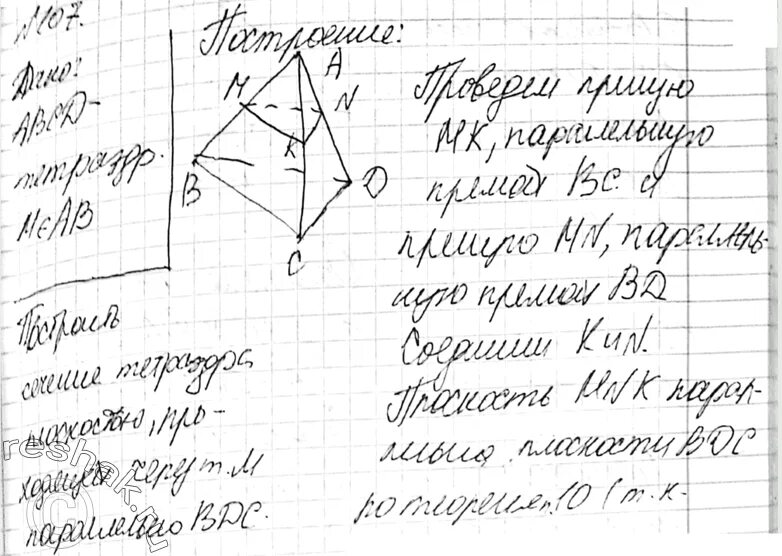 N107.
Дано:
ABCD-
тетраэдр.
M∈AB
Построить
сечение тетраэдра
плоскостью, про-
ходящей через т.М
параллельно BDC.
Построение:
A
M
N
K
B
D
C
Проведем прямую
MK, паралельную
прямой BC и
прямую MN, параллель-
ную прямой BD
Соединим K и N.
Плоскость MNK парал-
лельна плоскости BDC
по теореме п.10 (т.к.
reshak.ru
©